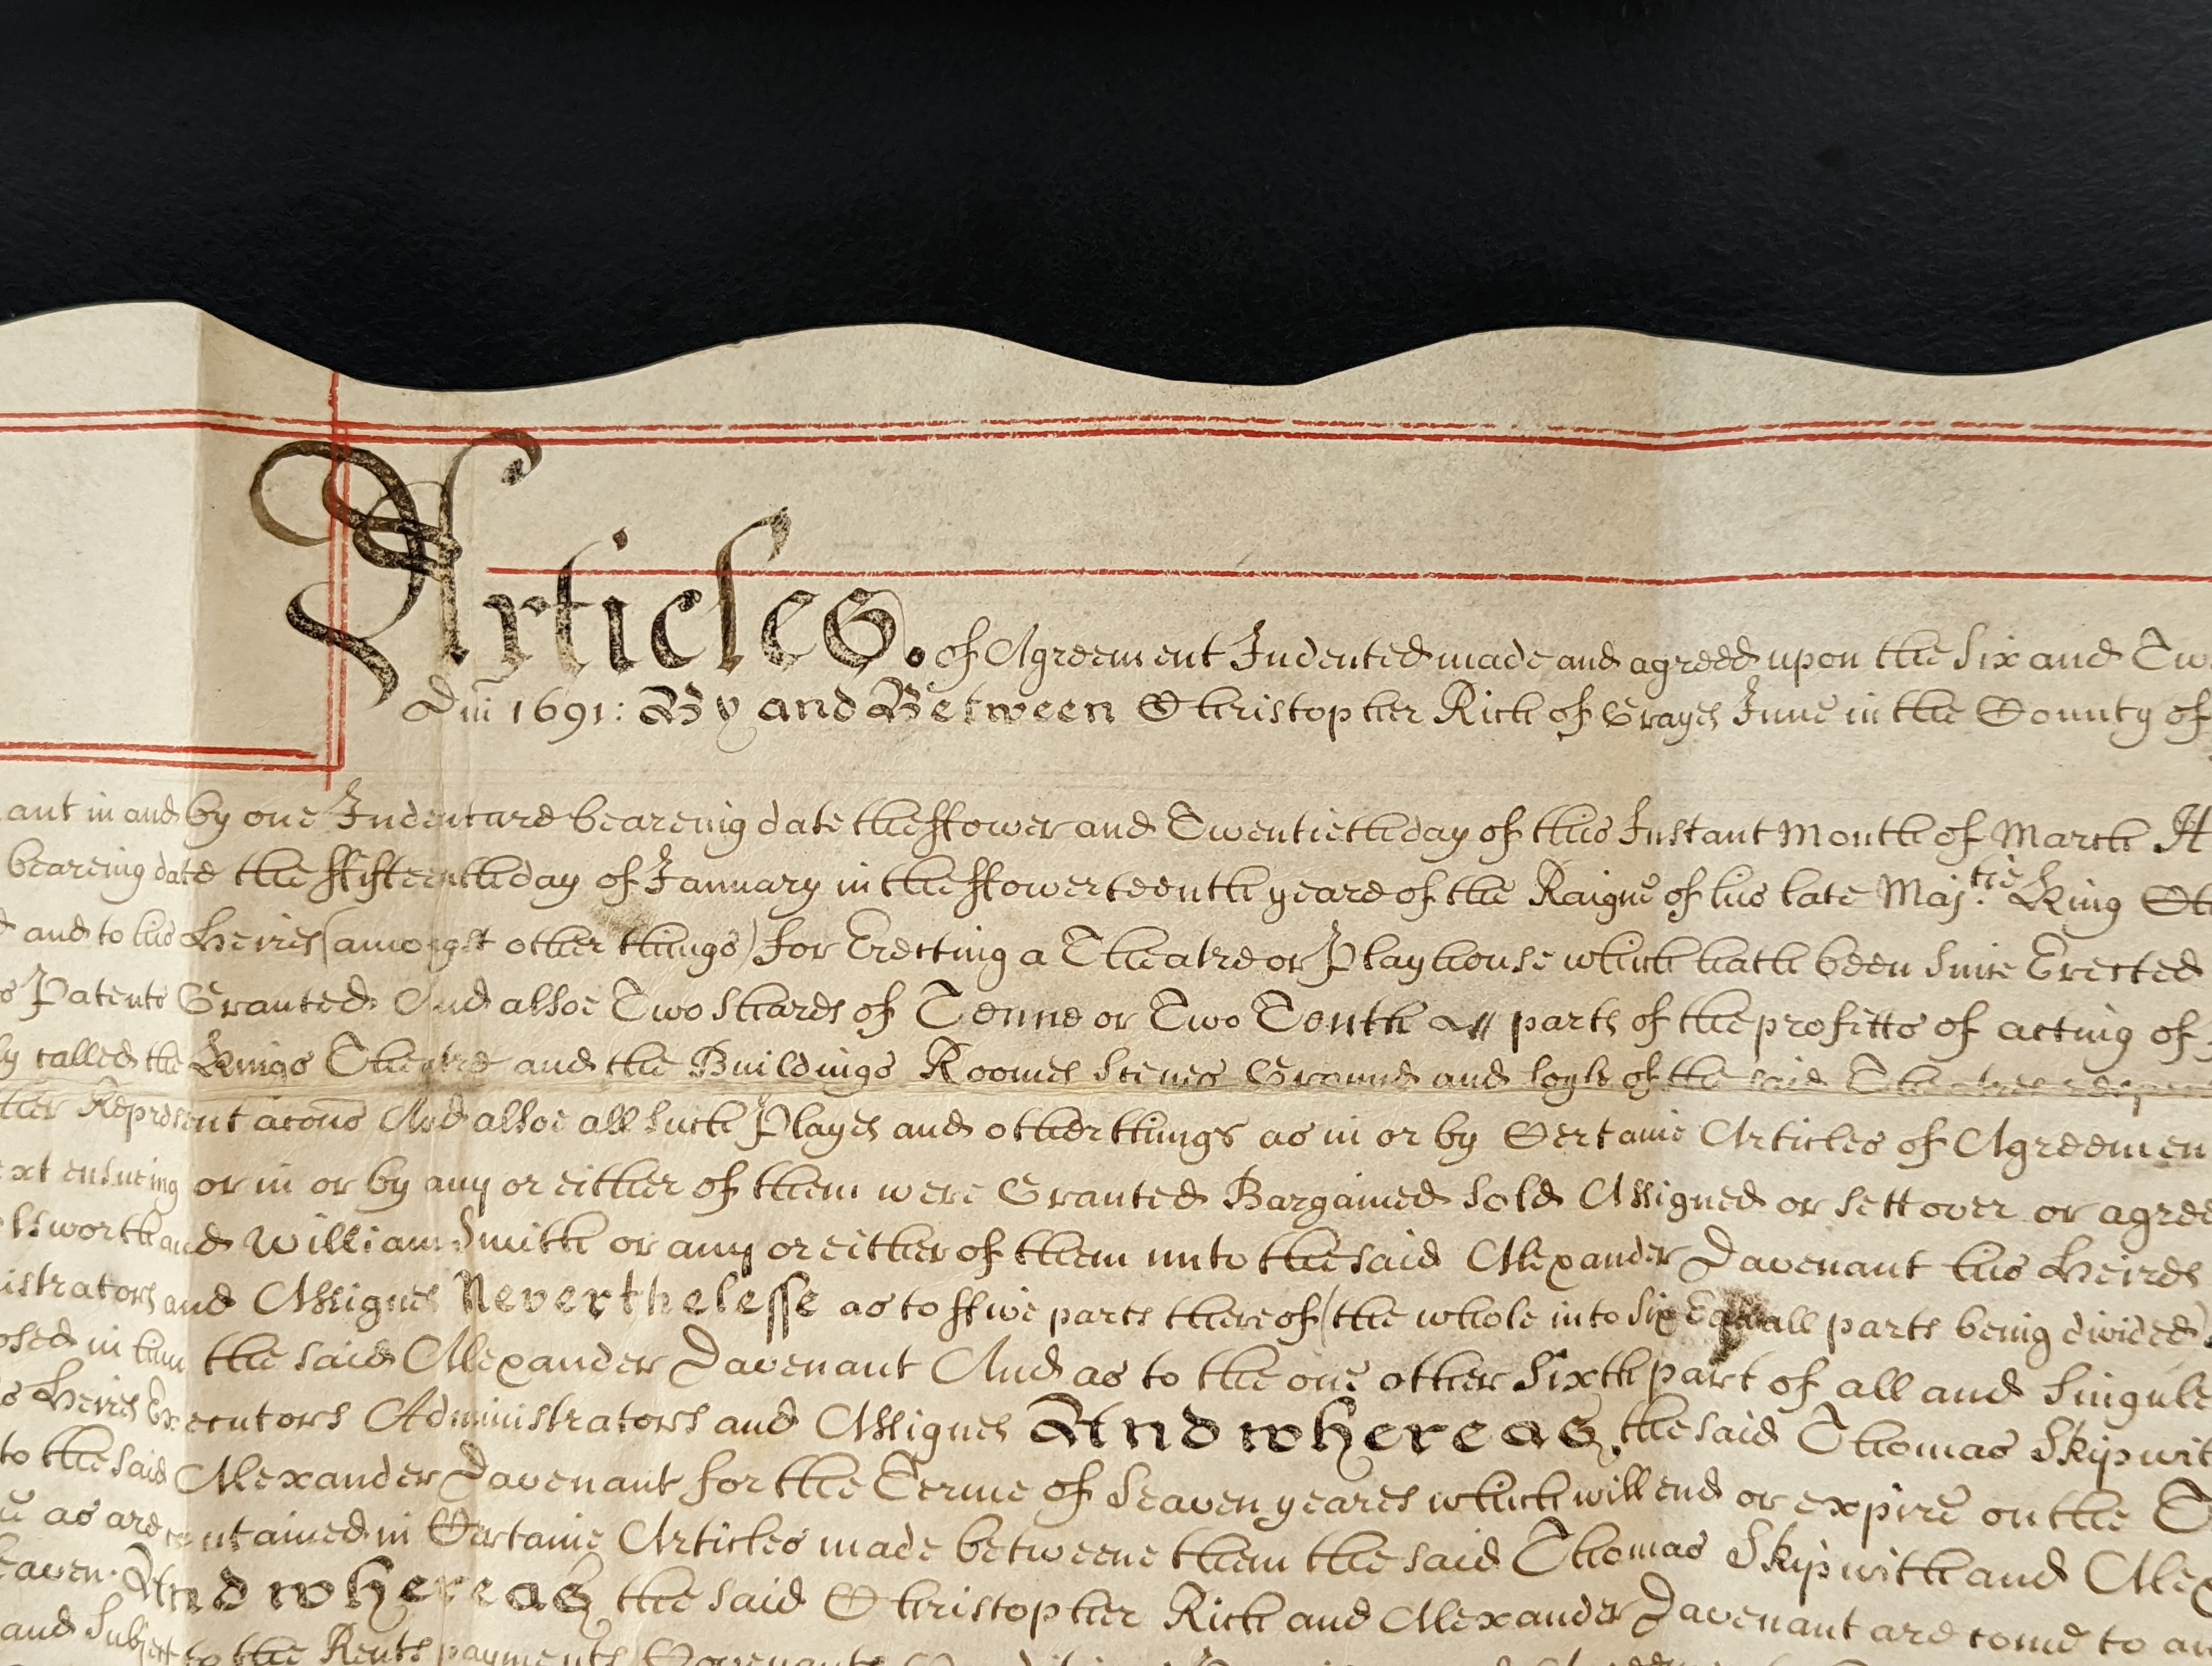 Articles. of Agreement Indented made and agreed upon the Six and Tw
Dni 1691: By and Between Christopher Rich of Grayes Inne in the County of
ant in and by one Indenture beareing date the ffower and Twentieth day of this Instant Month of March A
beareing date the ffifteenth day of January in the ffowerteenth yeare of the Raigne of his late Maj.tie King Ch
d and to his Heires (amongst other things) for Erecting a Theatre or Playhouse which hath been since Erected
s Patents Granted And alsoe Two Shares of Tenne or Two Tenth parts of the profitts of acting of
ly called the Kings Theatre and the Buildings Roomes Scenes Ground and Soyle of the said Theatres
ther Representacons And alsoe all such Playes and other things as in or by Certaine Articles of Agreemen
ext ensueing or in or by any or either of them were Granted Bargained Sold Assigned or sett over or agree
lsworth and William Smith or any or either of them unto the said Alexander Davenant his Heires
istrators and Assignes Neverthelesse as to ffive parts thereof (the whole into Six Equall parts being divided)
osed in him the said Alexander Davenant And as to the one other Sixth part of all and Singule
s Heires Executors Administrators and Assignes And whereas the said Thomas Skipwit
to the said Alexander Davenant for the Terme of Seaven yeares which will end or expire on the T
u as are contained in Certaine Articles made betweene them the said Thomas Skipwith and Alex
eaven. And whereas the said Christopher Rich and Alexander Davenant are come to an
and Subject to the Rents payments Covenants